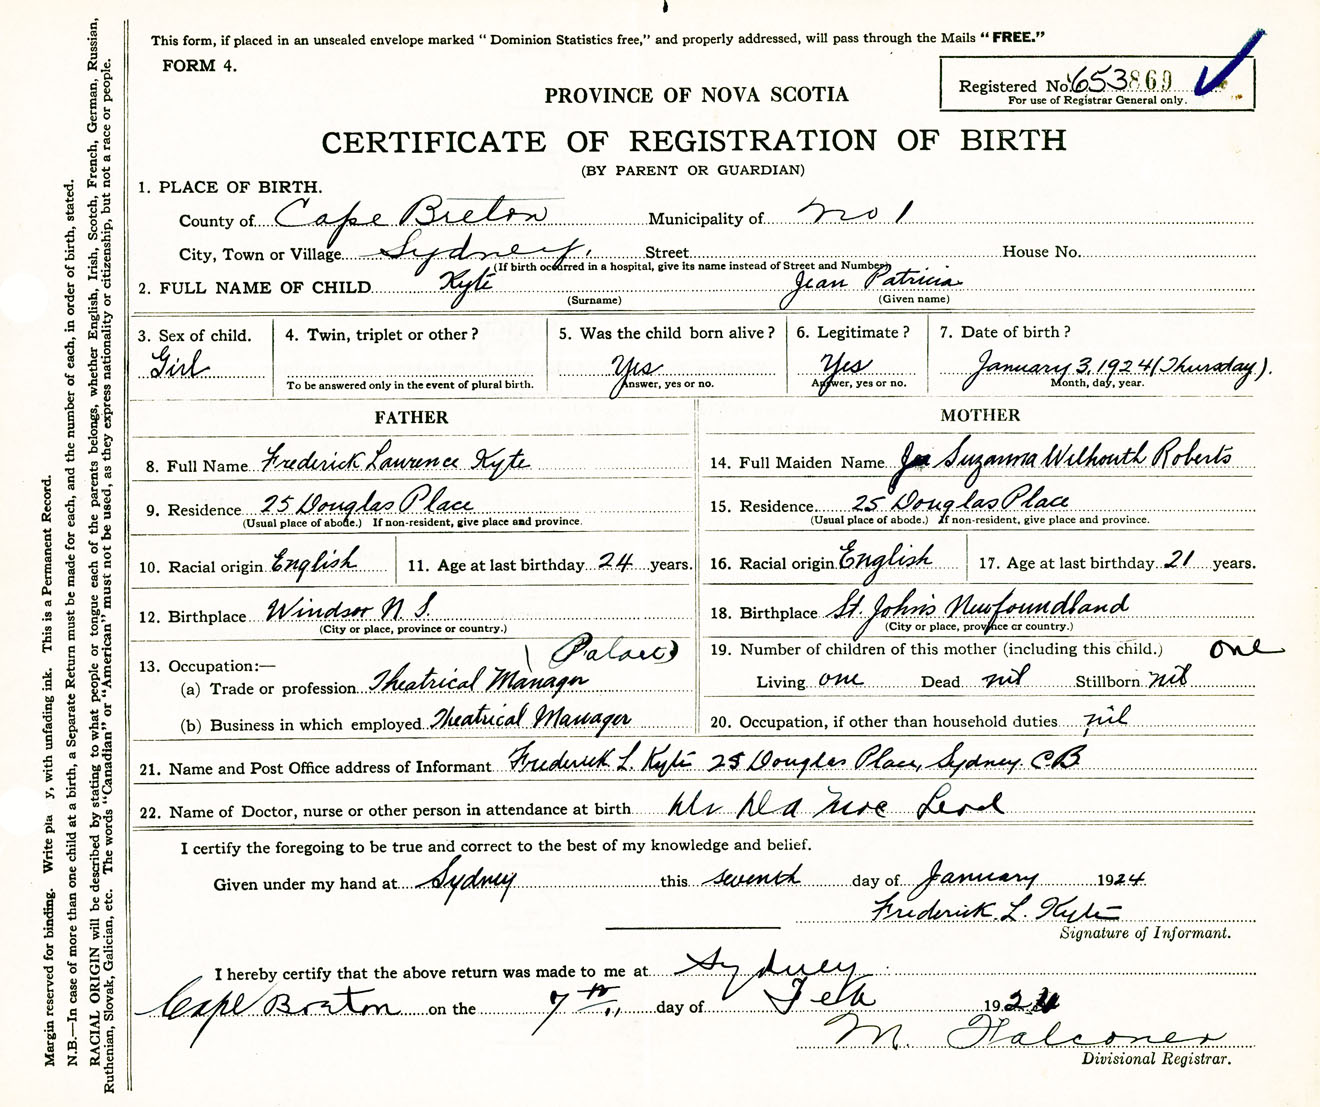 This form, if placed in an unsealed envelope marked “ Dominion Statistics free,” and properly addressed, will pass through the Mails “ FREE.”
FORM 4.
Registered No. 653869
For use of Registrar General only.
PROVINCE OF NOVA SCOTIA
CERTIFICATE OF REGISTRATION OF BIRTH
(BY PARENT OR GUARDIAN)
1. PLACE OF BIRTH.
County of Cape Breton Municipality of No 1
City, Town or Village Sydney, Street House No.
(If birth occurred in a hospital, give its name instead of Street and Number)
2. FULL NAME OF CHILD Kyte Jean Patricia
(Surname) (Given name)
3. Sex of child. 4. Twin, triplet or other ? 5. Was the child born alive ? 6. Legitimate ? 7. Date of birth ?
Girl Yes Yes January 3, 1924 (Thursday).
To be answered only in the event of plural birth. Answer, yes or no. Answer, yes or no. Month, day, year.
FATHER MOTHER
8. Full Name Frederick Laurence Kyte
14. Full Maiden Name Suzanna Wilhouth Roberts
9. Residence 25 Douglas Place
(Usual place of abode.) If non-resident, give place and province.
15. Residence. 25 Douglas Place
(Usual place of abode.) If non-resident, give place and province.
10. Racial origin English 11. Age at last birthday 24 years.
16. Racial origin English 17. Age at last birthday 21 years.
12. Birthplace Windsor N. S.
(City or place, province or country.)
18. Birthplace St. John's Newfoundland
(City or place, province or country.)
13. Occupation:—
(Palace)
(a) Trade or profession Theatrical Manager
(b) Business in which employed Theatrical Manager
19. Number of children of this mother (including this child.) one
Living one Dead nil Stillborn nil
20. Occupation, if other than household duties nil
21. Name and Post Office address of Informant Frederick L. Kyte 25 Douglas Place, Sydney C.B
22. Name of Doctor, nurse or other person in attendance at birth Dr D A Mac Leod
I certify the foregoing to be true and correct to the best of my knowledge and belief.
Given under my hand at Sydney this seventh day of January 1924
Frederick L. Kyte
Signature of Informant.
I hereby certify that the above return was made to me at Sydney
Cape Breton on the 7th day of Feb 1924
M. Falconer
Divisional Registrar.
Margin reserved for binding. Write pla y, with unfading ink. This is a Permanent Record.
N.B.—In case of more than one child at a birth, a Separate Return must be made for each, and the number of each, in order of birth, stated.
RACIAL ORIGIN will be described by stating to what people or tongue each of the parents belongs, whether English, Irish, Scotch, French, German, Russian,
Ruthenian, Slovak, Galician, etc. The words “Canadian” or “American” must not be used, as they express nationality or citizenship, but not a race or people.